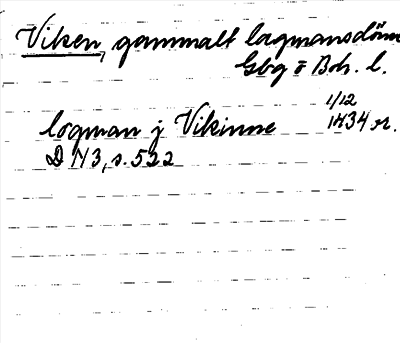 Viken, gammalt lagmansdöme
Gbg o Boh. l.
1/12
lagman j Vikinne 1434 or.
D N3, s. 522